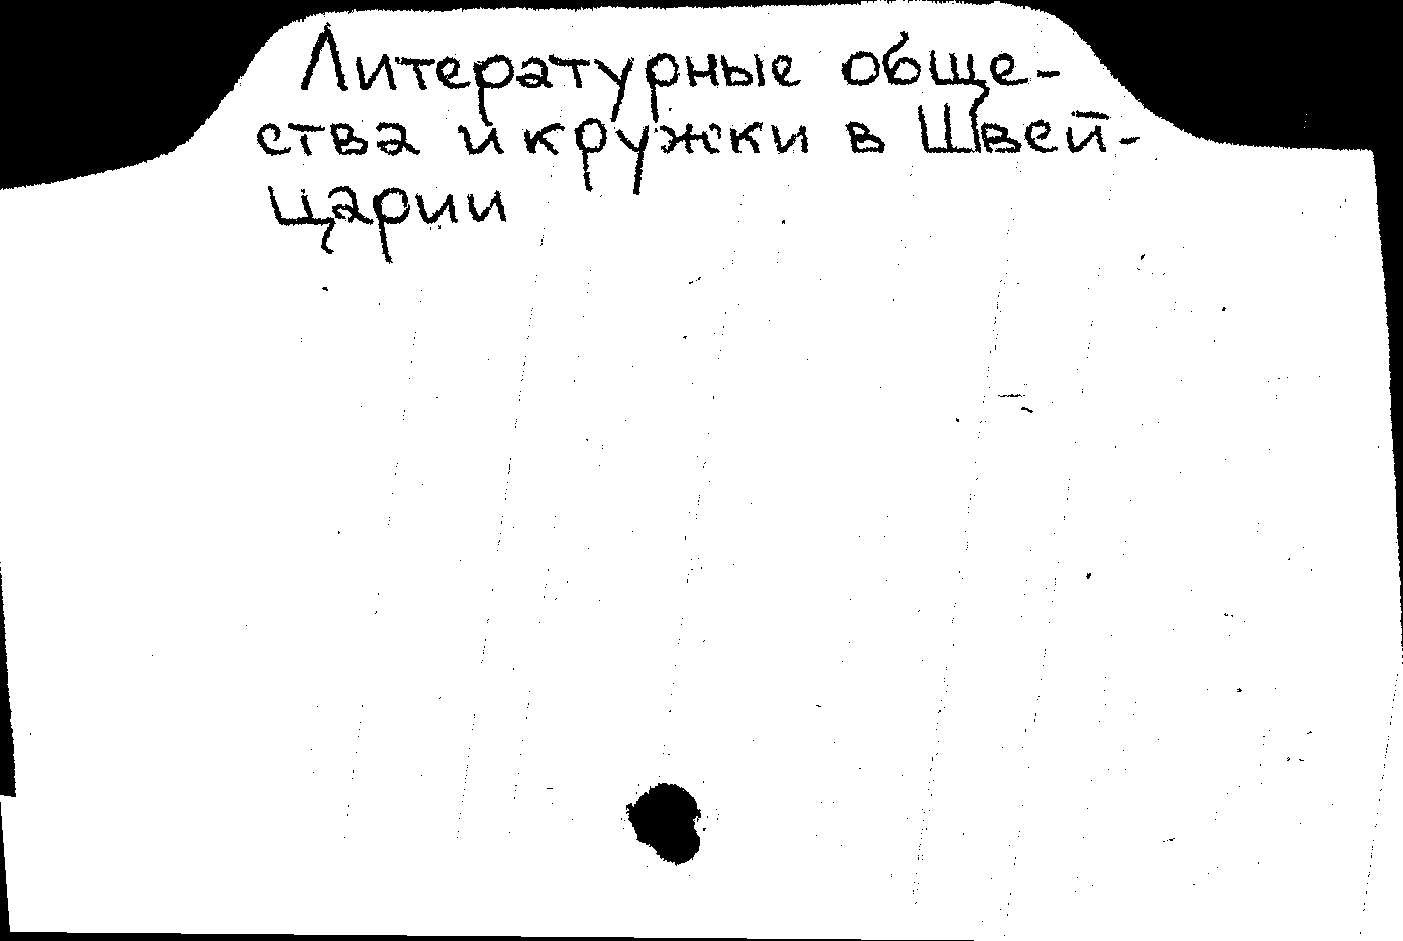 Литературные обще-
ства и кружки в Швей-
царии